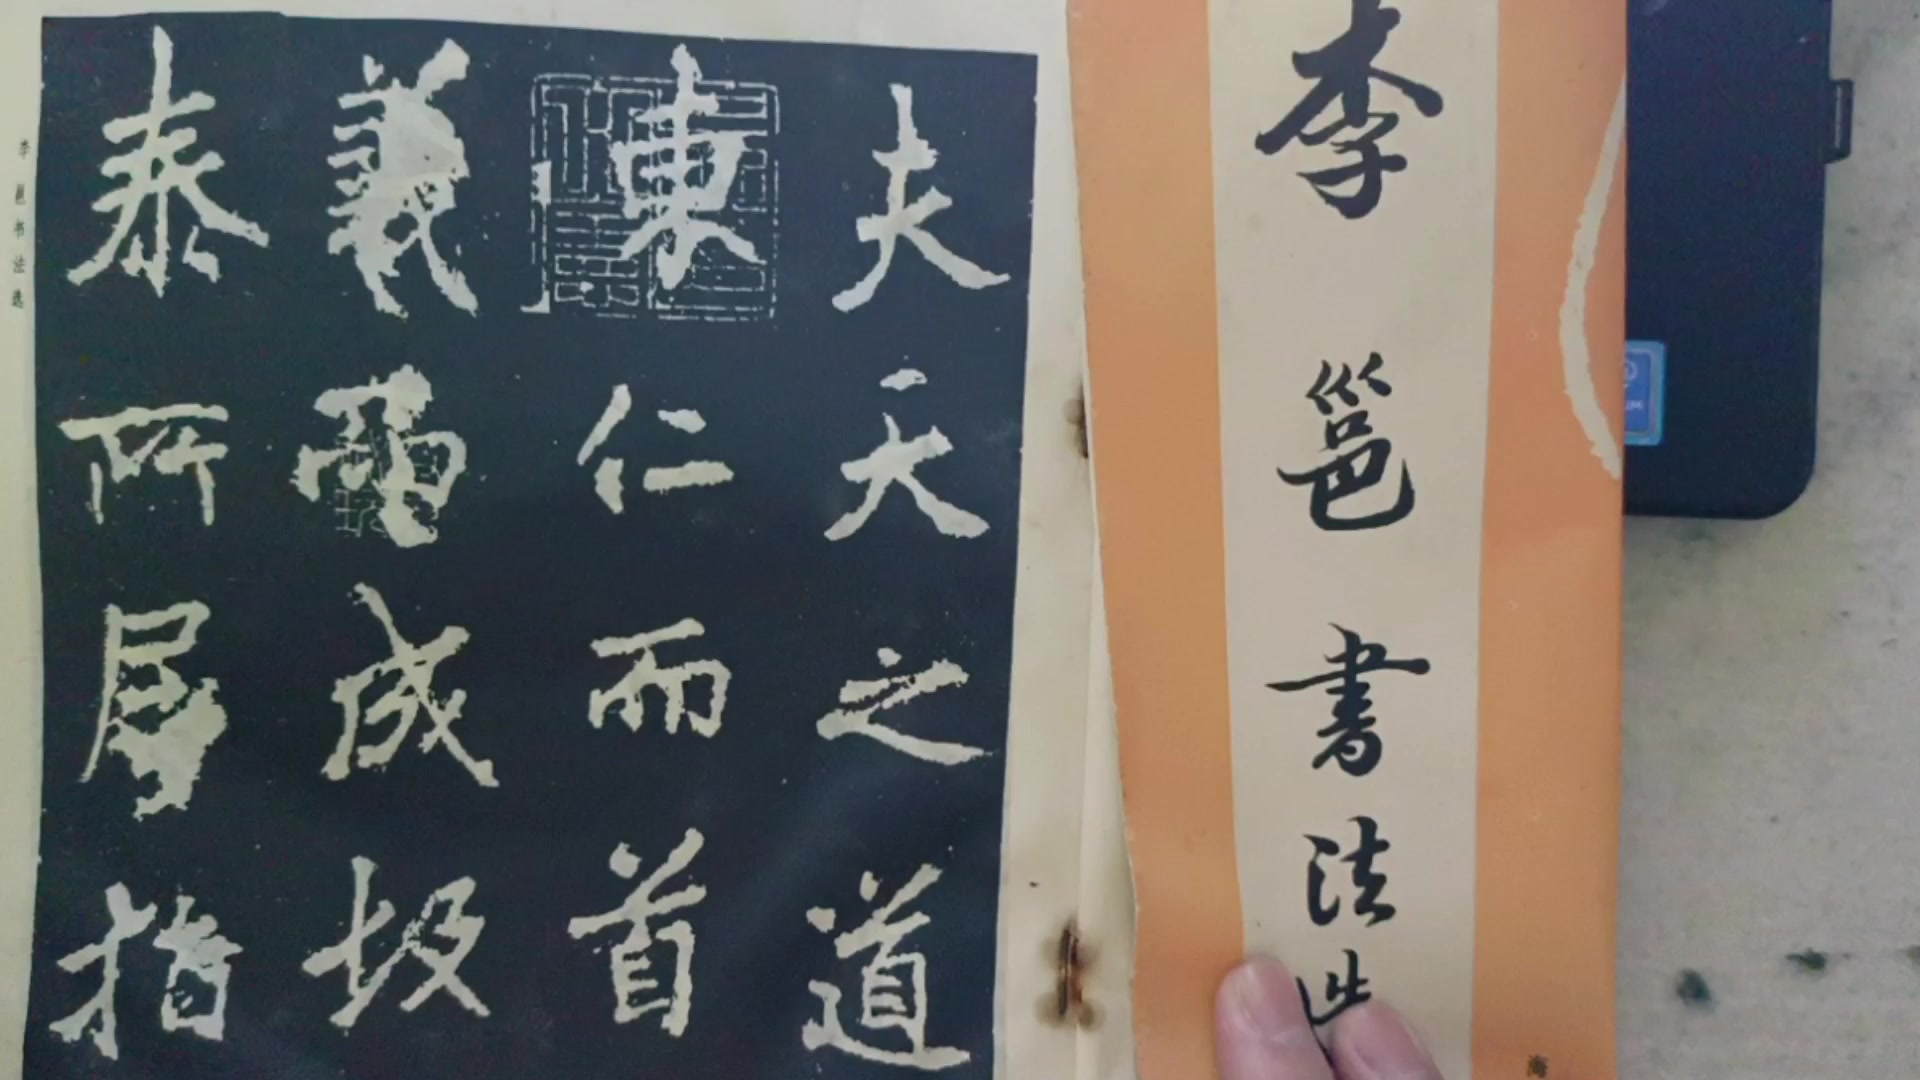 李邕書法
海
夫天之道
東仁而首
義而成故
泰所居指
李邕书法选